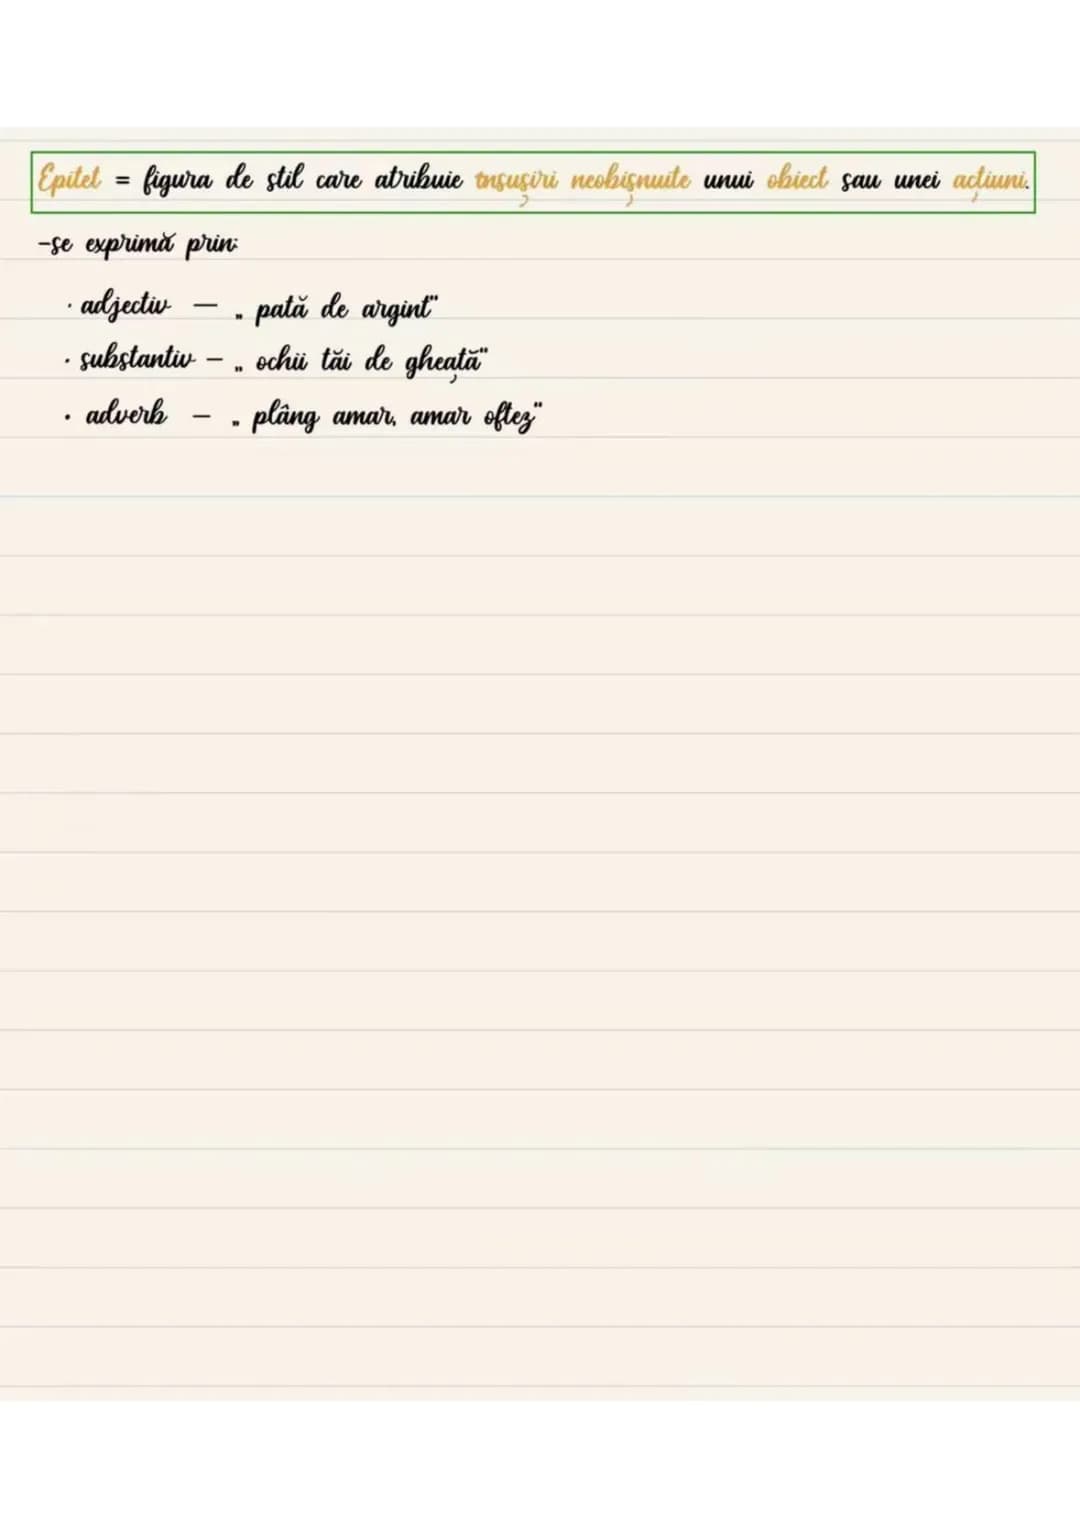 Epitet = figura de stil care atribuie însușiri neobișnuite unui obiect sau unei acțiuni.
-se exprimă prin:
· adjectiv — „ pată de argint"
· substantiv — „ ochii tăi de gheață"
· adverb — „ plâng amar, amar oftez"